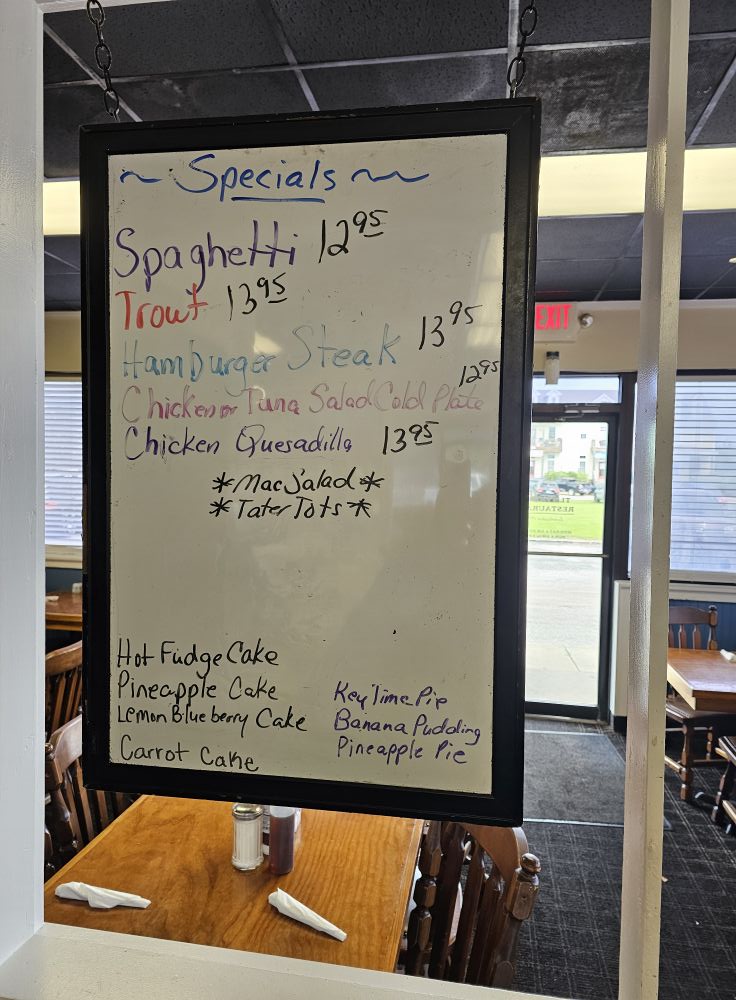 ~ Specials ~
Spaghetti 12.95
Trout 13.95
Hamburger Steak 13.95
Chicken or Tuna Salad Cold Plate 12.95
Chicken Quesadilla 13.95
*Mac Salad*
*Tater Tots*
Hot Fudge Cake
Pineapple Cake
Lemon Blueberry Cake
Carrot Cake
Key Lime Pie
Banana Pudding
Pineapple Pie
EXIT
RESTAURA